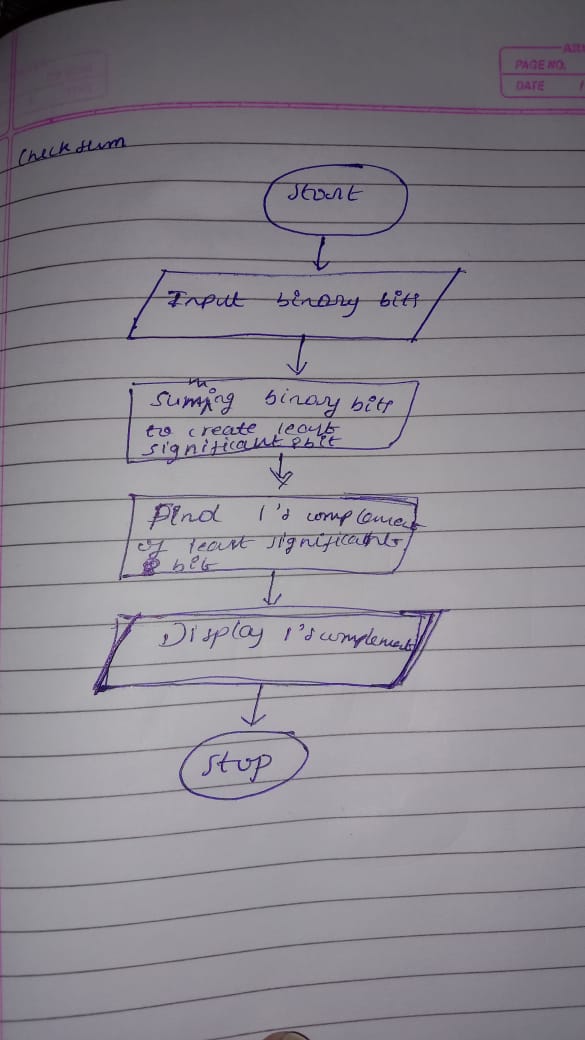 PAGE NO.
DATE
Check sum
Start
Input binary bits
Summing binary bits
to create least
significant bit
Find 1's complement
of least significant
bit
Display 1's complement
Stop